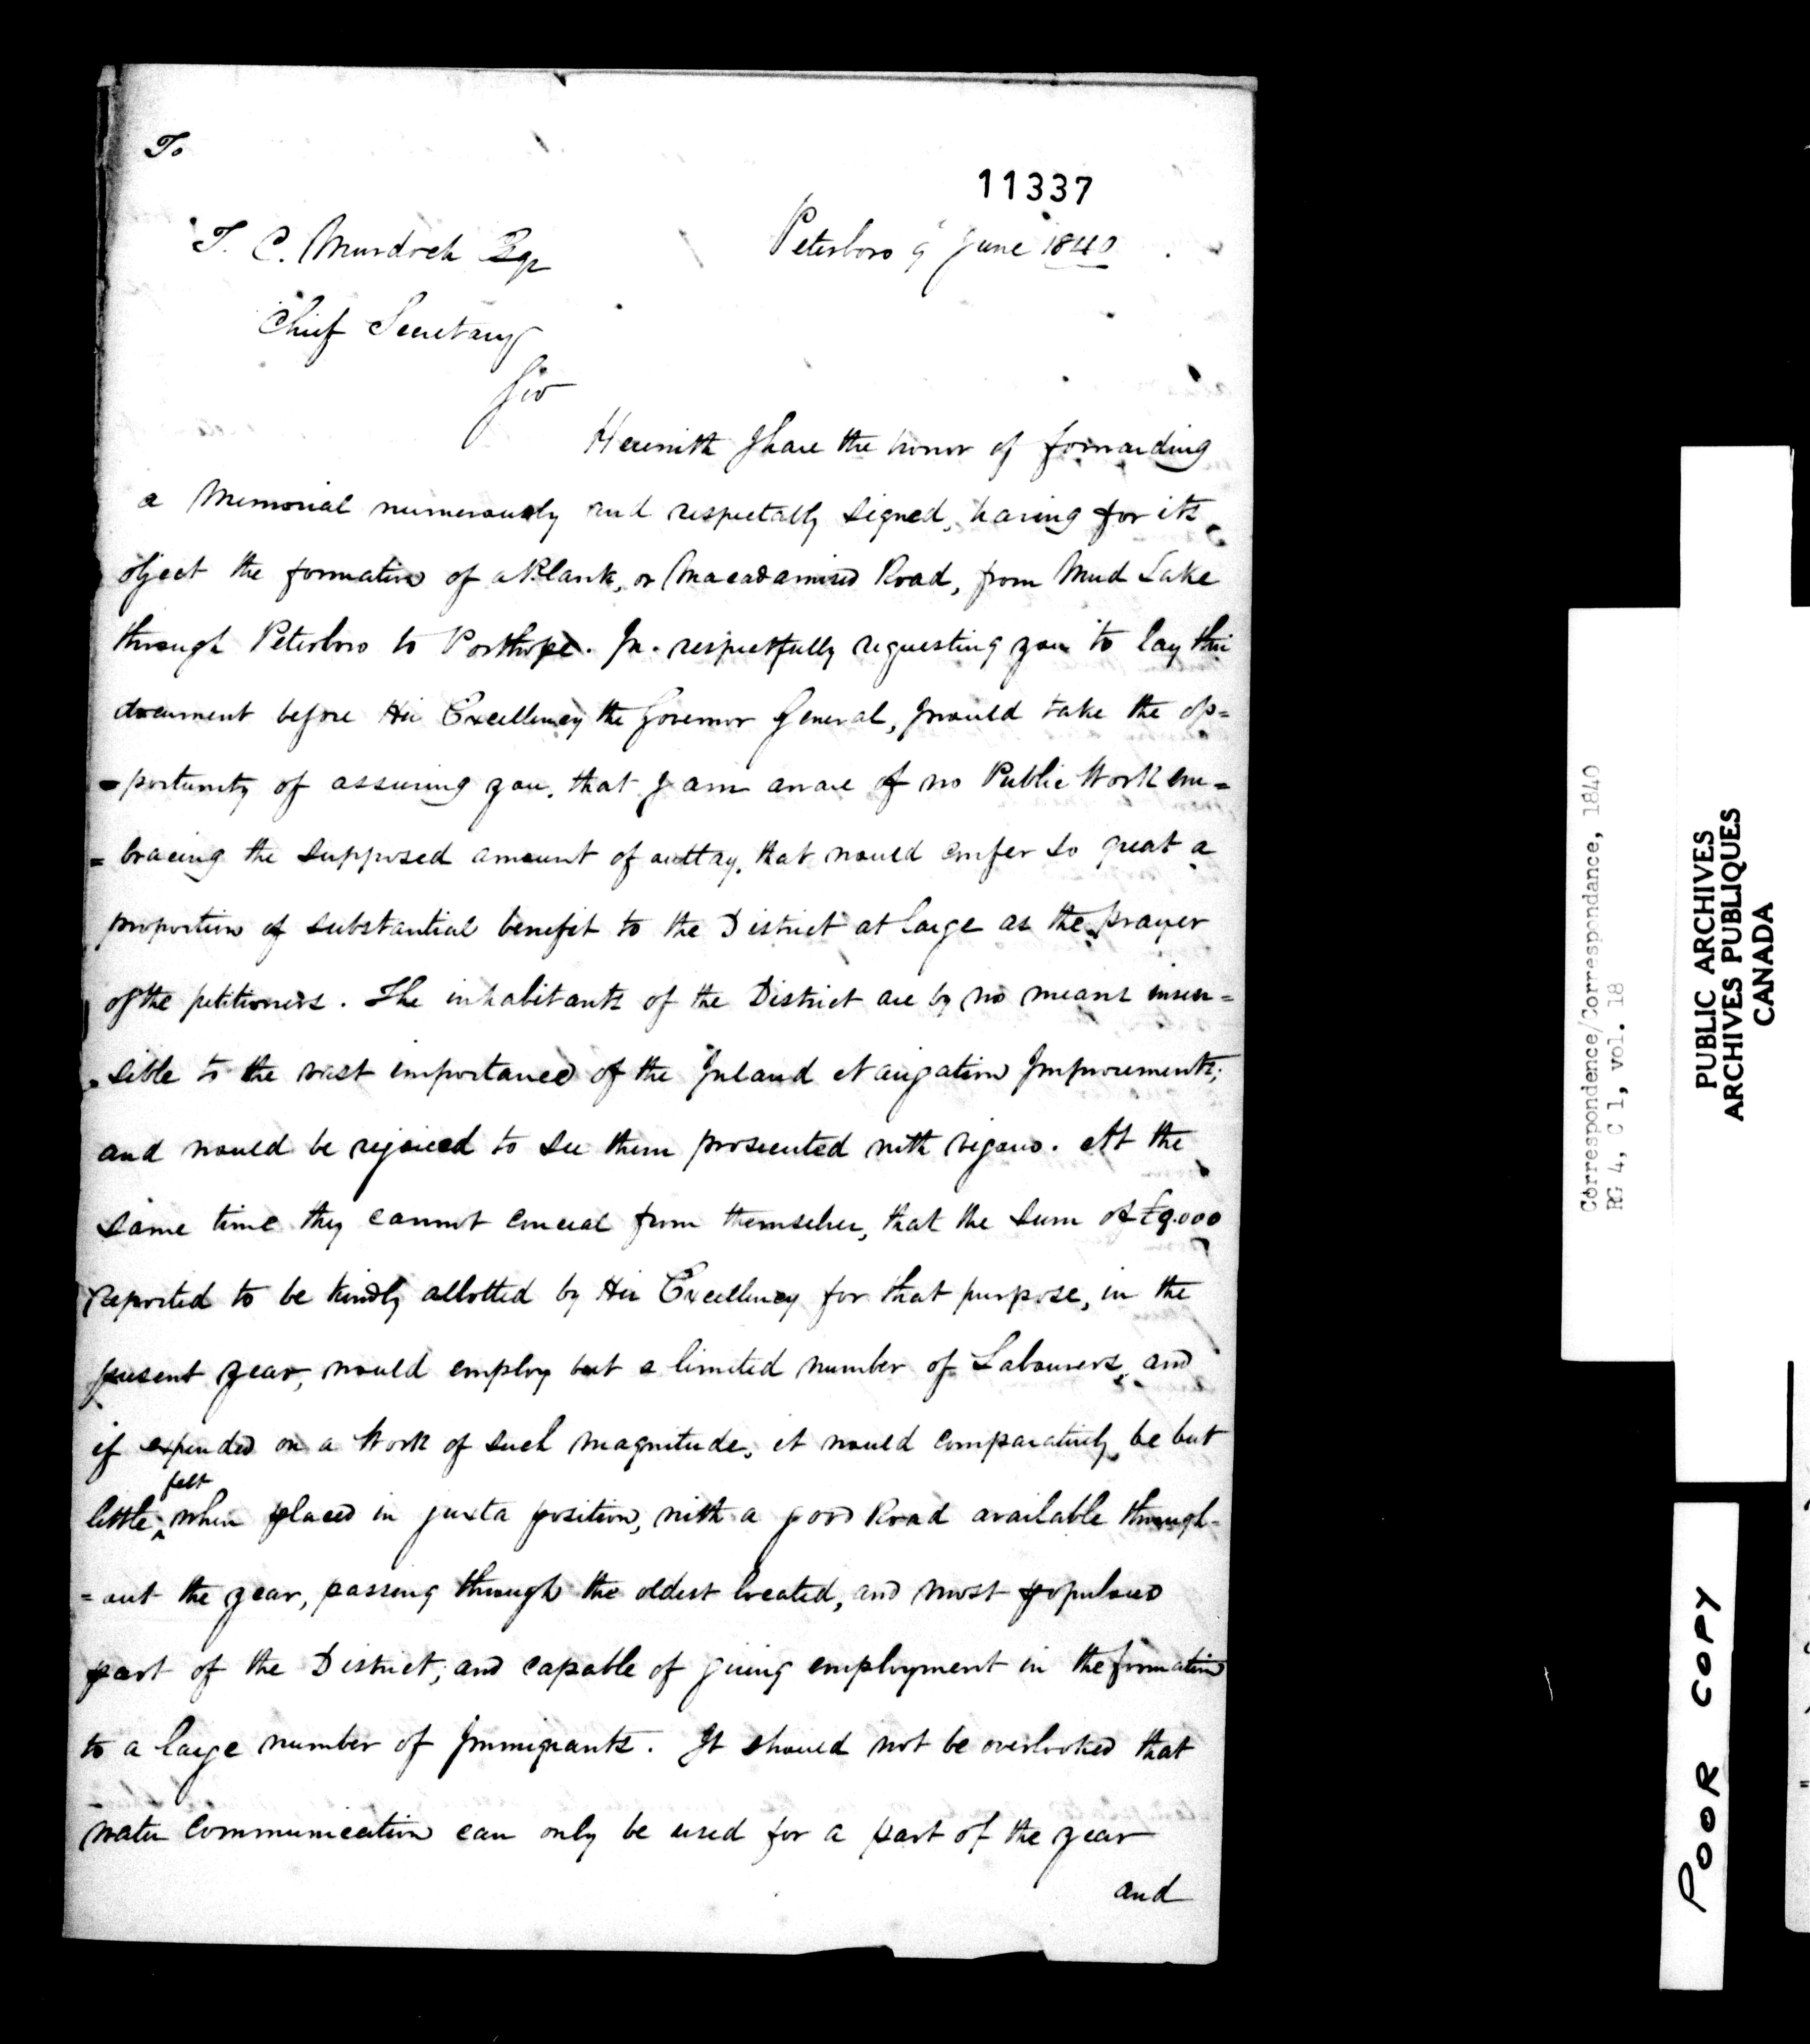 To
11337
T. C. Murdoch Esqr
Peterboro 9 June 1840
Chief Secretary
Sir
Herewith I have the honor of forwarding
a Memorial numerously and respectably signed, having for its
object the formation of a Plank, or Macadamised Road, from Mud Lake
through Peterboro to Porthope. In respectfully requesting you to lay this
document before His Excellency the Governor General, I would take the op=
=portunity of assuring you, that I am aware of no Public Work em=
=bracing the supposed amount of outlay, that would confer so great a
proportion of substantial benefit to the District at large as the prayer
of the petitioners. The inhabitants of the District are by no means insen=
=sible to the vast importance of the Inland Navigation Improvements;
and would be rejoiced to see them prosecuted with vigour. At the
same time they cannot conceal from themselves, that the sum of £9.000
reported to be kindly allotted by His Excellency for that purpose, in the
present year, would employ but a limited number of Labourers, and
if expended on a Work of such magnitude, it would comparatively be but
little, ^felt when placed in juxta position, with a good Road available through=
=out the year, passing through the oldest located, and most populous
part of the District; and capable of giving employment in the formation
to a large number of Immigrants. It should not be overlooked that
water communication can only be used for a part of the year
and
Correspondence/Correspondance, 1840
RG 4, C 1, vol. 18
PUBLIC ARCHIVES
ARCHIVES PUBLIQUES
CANADA
POOR COPY